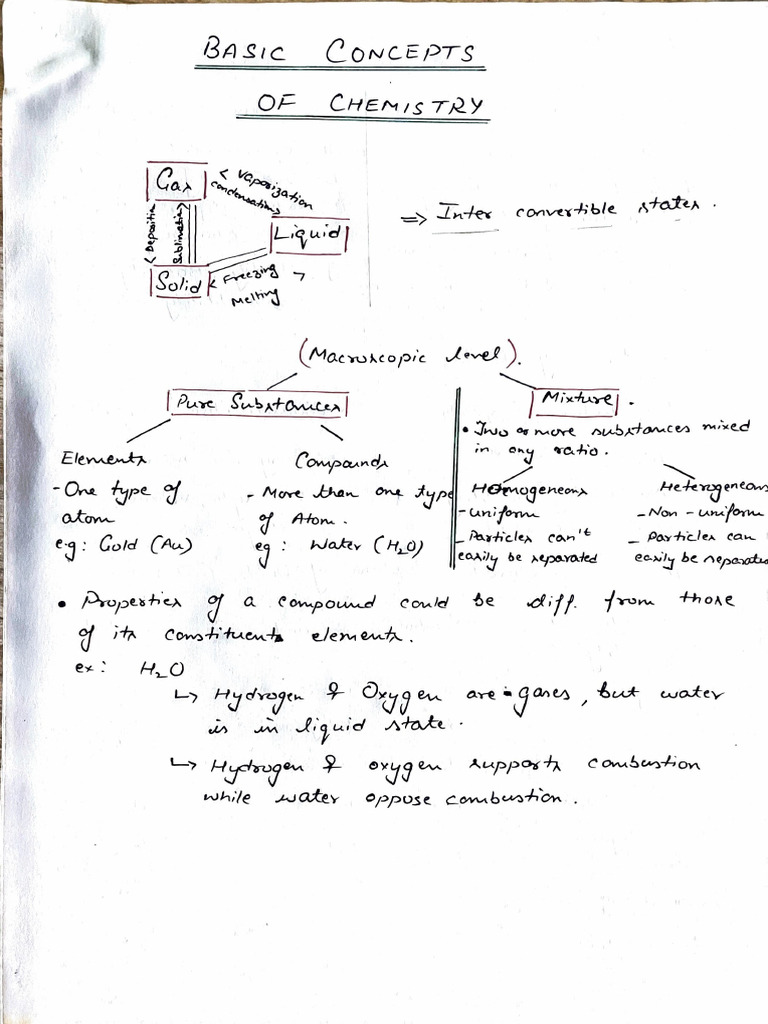 BASIC CONCEPTS
OF CHEMISTRY
Gas
< Vaporization
condensation >
< Deposition
Sublimation >
Liquid
Solid
< Freezing
Melting >
=> Inter convertible states.
(Macroscopic level).
Pure Substances
Elements
- One type of
atom
e.g: Gold (Au)
Compounds
- More than one type
of Atom.
eg: Water (H₂O)
Mixture.
• Two or more substances mixed
in any ratio.
Homogeneous
- uniform
- Particles can't
easily be separated
Heterogeneous
- Non - uniform
- Particles can
easily be separated
• Properties of a compound could be diff. from those
of its constituent elements.
ex: H₂O
↳ Hydrogen & Oxygen are gases, but water
is in liquid state.
↳ Hydrogen & oxygen supports combustion
while water oppose combustion.